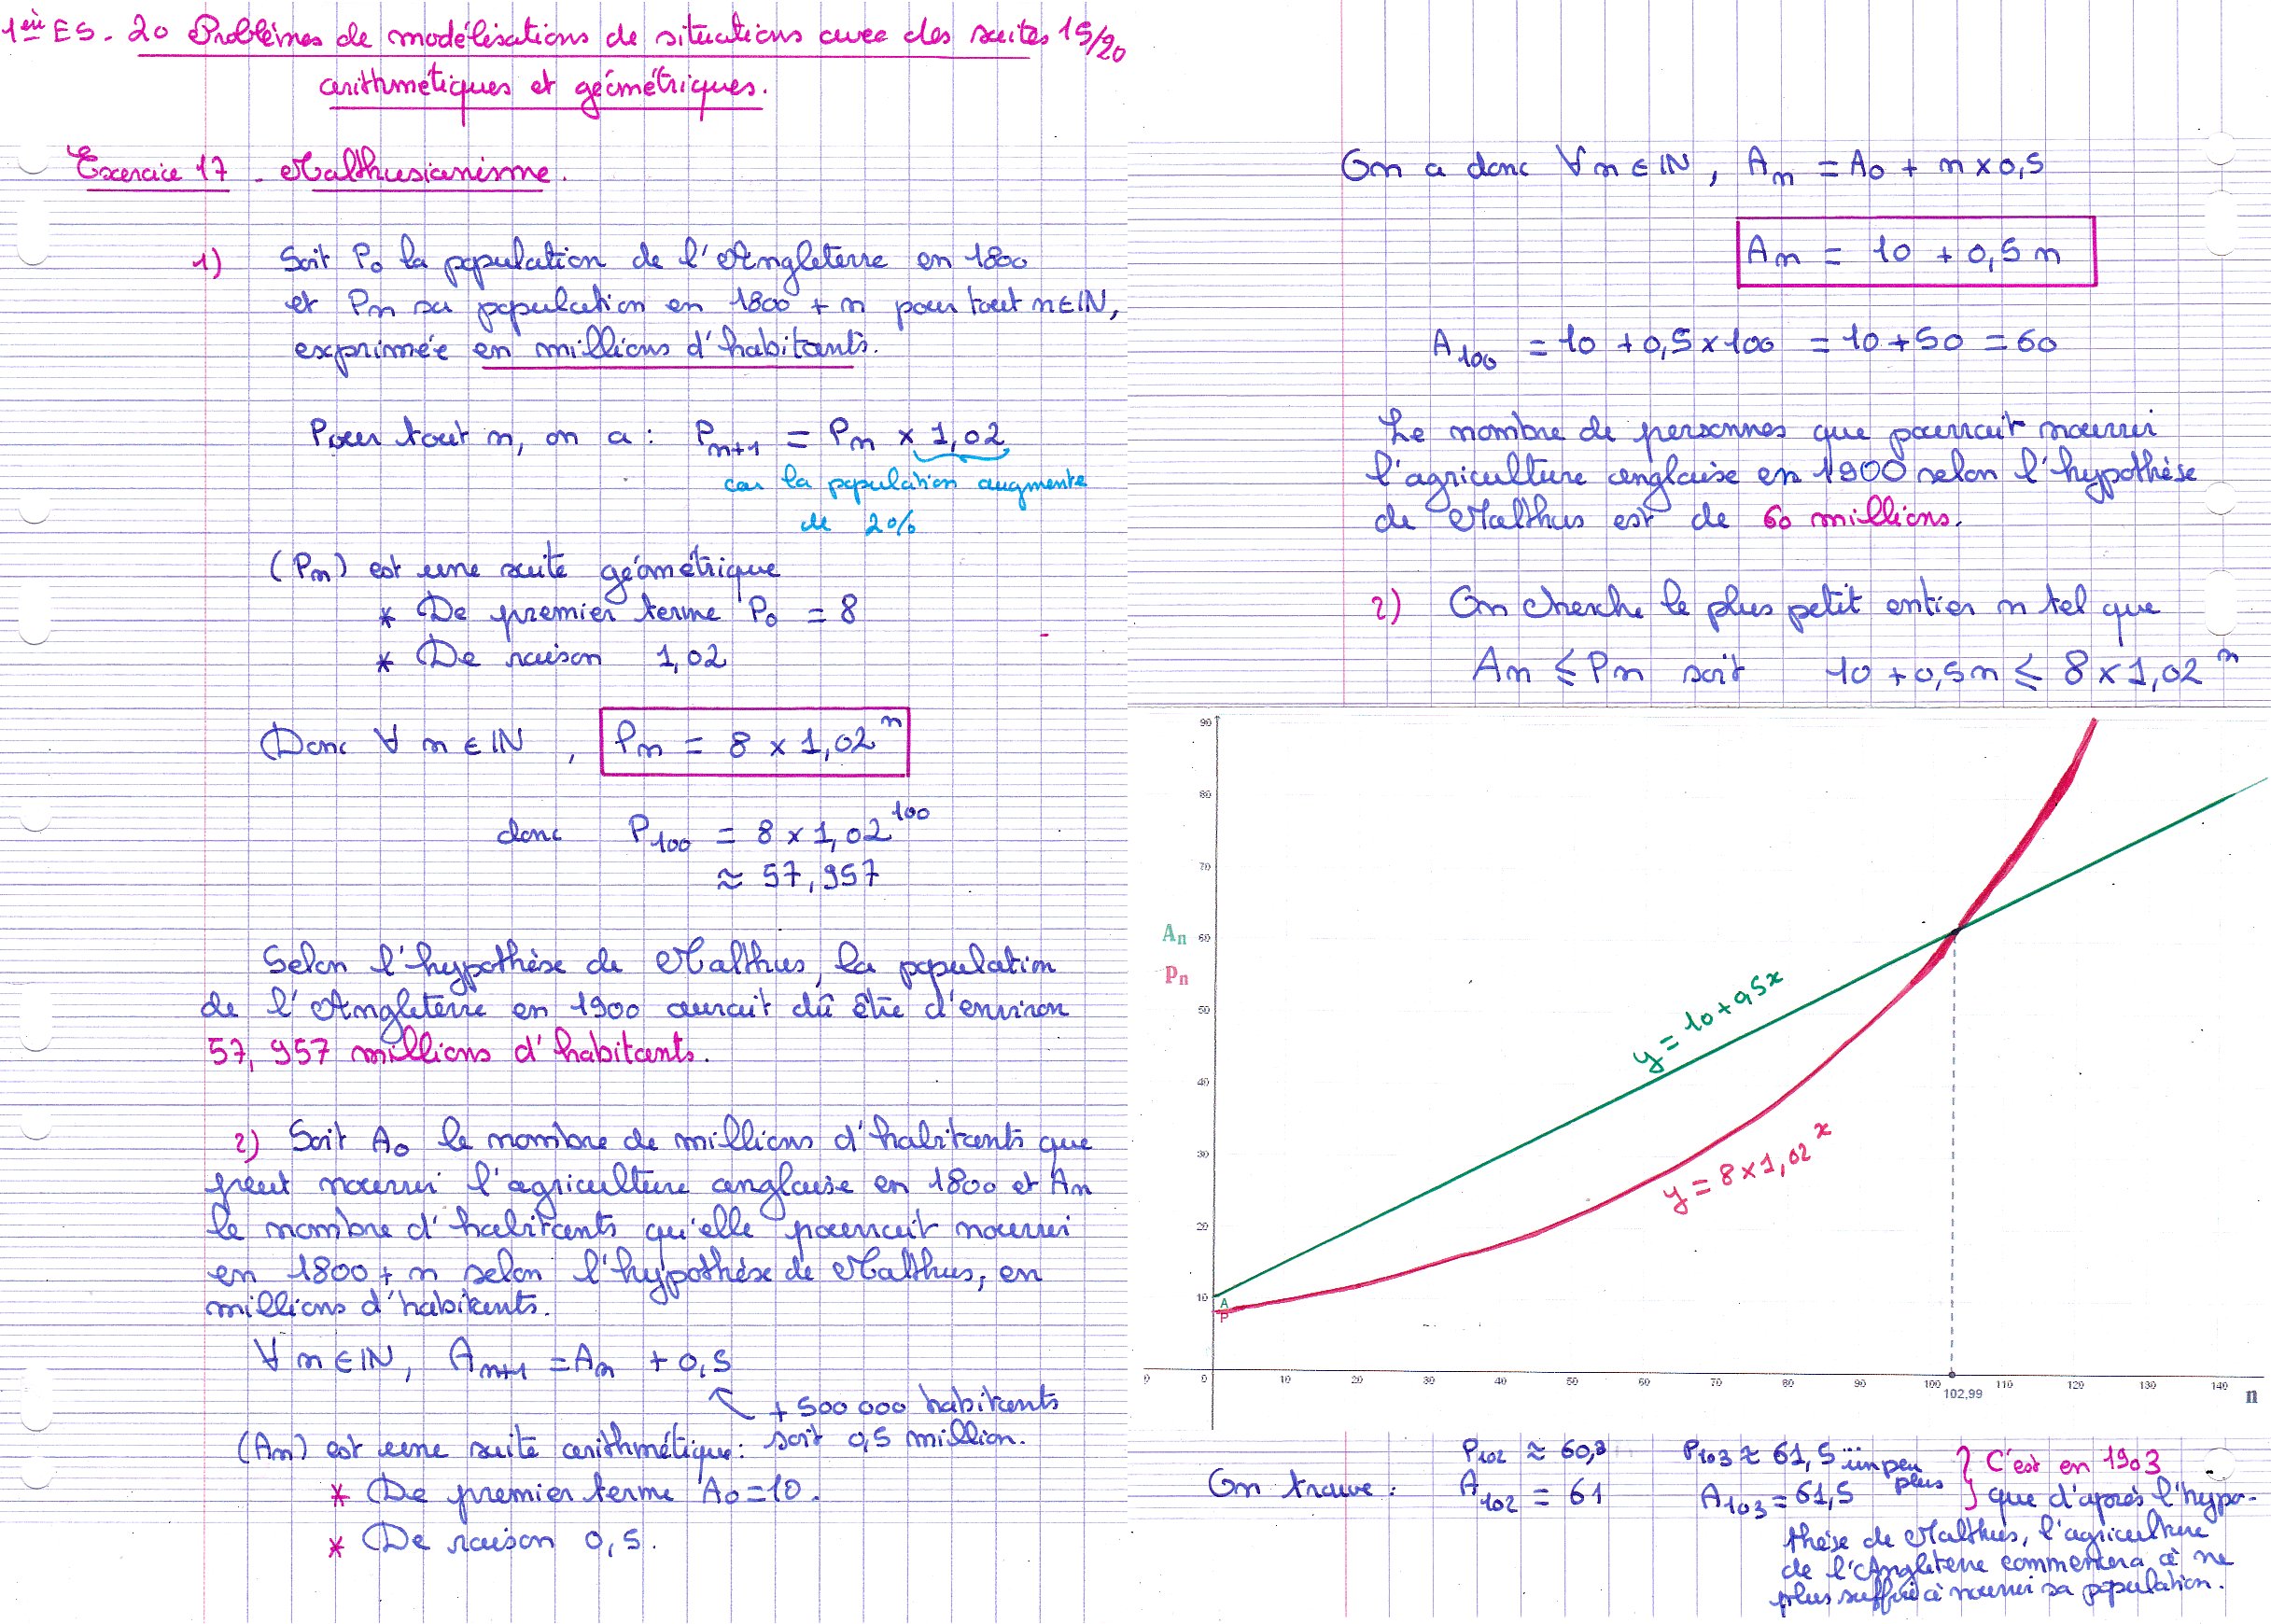 1ère ES. 20 Problèmes de modélisations de situations avec des suites 15/20
arithmétiques et géométriques.
Exercice 17 - Malthusianisme.
1) Soit P₀ la population de l'Angleterre en 1800
et Pn sa population en 1800 + n pour tout n∈ℕ,
exprimée en millions d'habitants.
Pour tout n, on a : Pn+1 = Pn × 1,02
car la population augmente
de 2%
(Pn) est une suite géométrique
* De premier terme P₀ = 8
* De raison 1,02
Donc ∀ n ∈ ℕ , Pn = 8 × 1,02ⁿ
donc P₁₀₀ = 8 × 1,02¹⁰⁰
≈ 57,957
Selon l'hypothèse de Malthus, la population
de l'Angleterre en 1900 aurait dû être d'environ
57,957 millions d'habitants.
2) Soit A₀ le nombre de millions d'habitants que
peut nourrir l'agriculture anglaise en 1800 et An
le nombre d'habitants qu'elle pourrait nourrir
en 1800 + n selon l'hypothèse de Malthus, en
millions d'habitants.
∀ n ∈ ℕ, An+1 = An + 0,5
+ 500 000 habitants
soit 0,5 million.
(An) est une suite arithmétique :
* De premier terme A₀ = 10.
* De raison 0,5.
On a donc ∀ n ∈ ℕ, An = A₀ + n × 0,5
An = 10 + 0,5 n
A₁₀₀ = 10 + 0,5 × 100 = 10 + 50 = 60
Le nombre de personnes que pourrait nourrir
l'agriculture anglaise en 1900 selon l'hypothèse
de Malthus est de 60 millions.
2) On cherche le plus petit entier n tel que
An ⩽ Pn soit 10 + 0,5n ⩽ 8 × 1,02ⁿ
90
80
70
60
50
40
30
20
10
An
Pn
y = 10 + 0,5x
y = 8 × 1,02ˣ
A
P
0 0 10 20 30 40 50 60 70 80 90 100 110 120 130 140
102,99
n
On trouve : P₁₀₂ ≈ 60,3 P₁₀₃ ≈ 61,5 un peu plus
A₁₀₂ = 61 A₁₀₃ = 61,5
C'est en 1903
que d'après l'hypo-
thèse de Malthus, l'agriculture
de l'Angleterre commencera à ne
plus suffire à nourrir sa population.